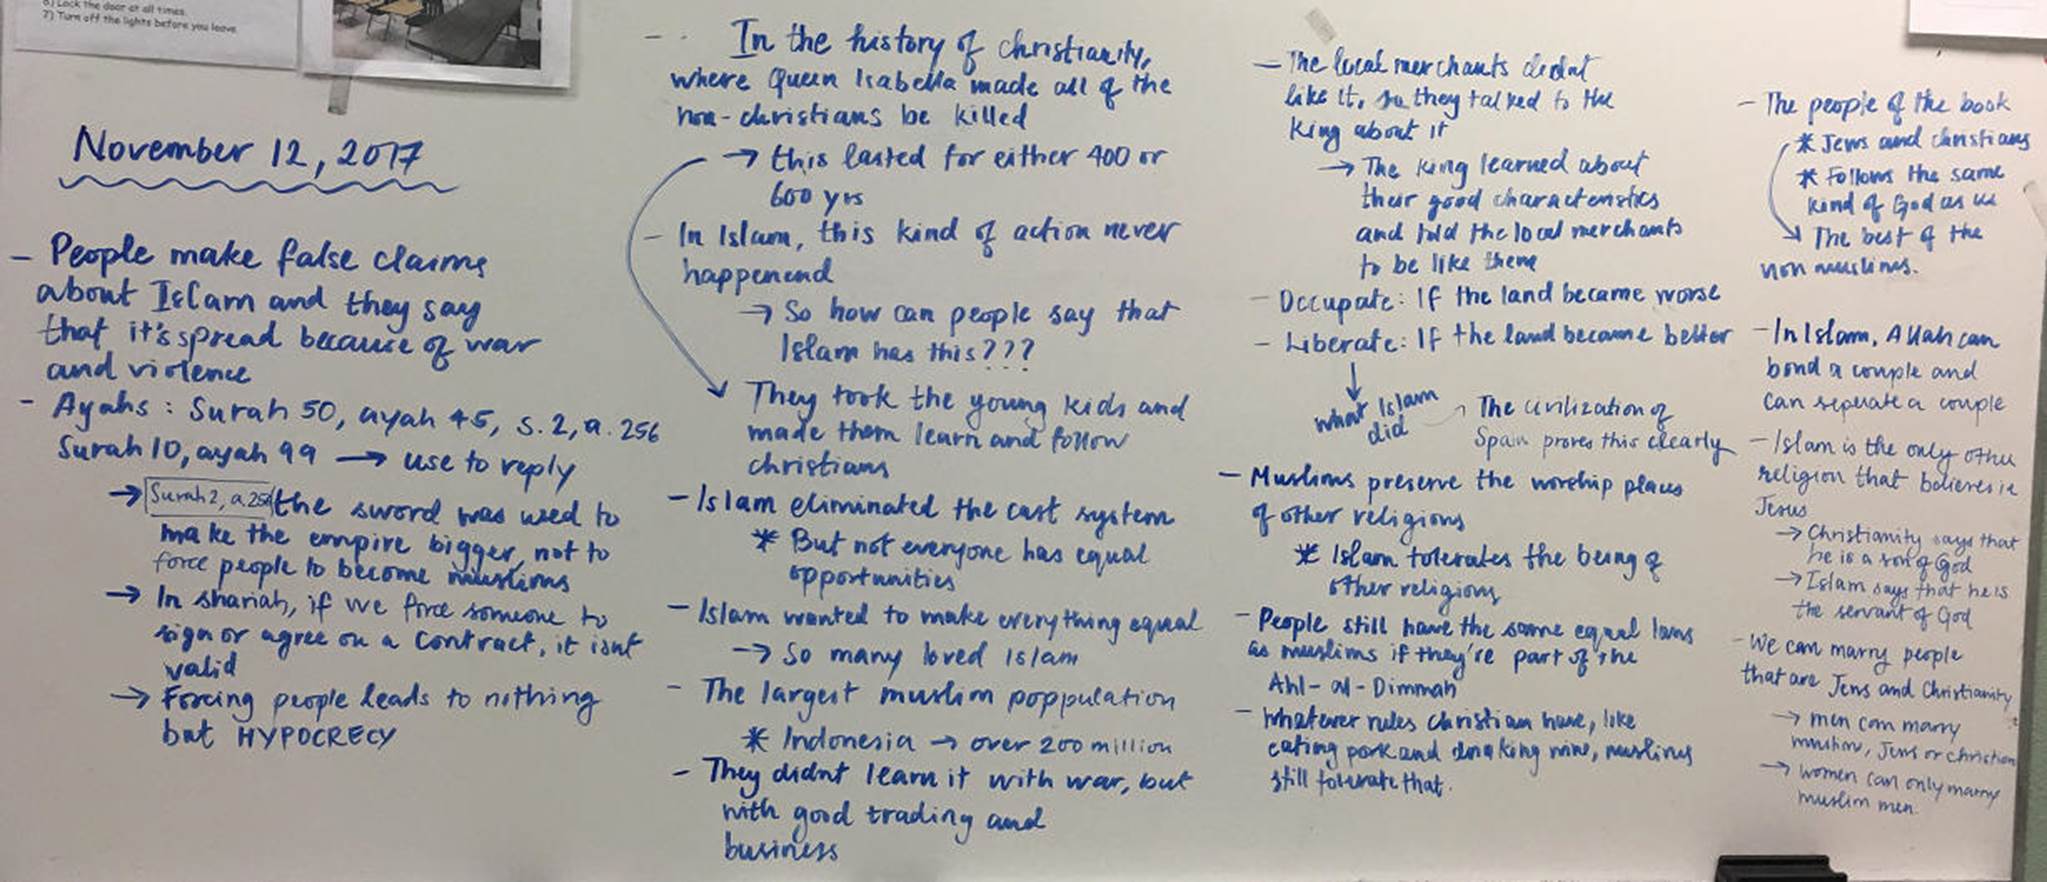 6) Lock the door at all times.
7) Turn off the lights before you leave
November 12, 2017
- People make false claims
about Islam and they say
that it's spread because of war
and violence
- Ayahs : Surah 50, ayah 45, s. 2, a. 256
Surah 10, ayah 99 → use to reply
→ Surah 2, a.256 the sword was used to
make the empire bigger, not to
force people to become muslims
→ In shariah, if we force someone to
sign or agree on a contract, it isnt
valid
→ Forcing people leads to nothing
but HYPOCRECY
- In the history of christianity,
where Queen Isabella made all of the
non-christians be killed
→ this lasted for either 400 or
600 yrs
- In Islam, this kind of action never
happenend
→ So how can people say that
Islam has this???
They took the young kids and
made them learn and follow
christians
- Islam eliminated the cast system
* But not everyone has equal
opportunities
- Islam wanted to make everything equal
→ So many loved Islam
- The largest muslim poppulation
* Indonesia → over 200 million
- They didnt learn it with war, but
with good trading and
business
- The local merchants didnt
like it, so they talked to the
King about it
→ The king learned about
their good characteristics
and told the local merchants
to be like them
- Occupate: If the land became worse
- Liberate: If the land became better
↓
what Islam
did
→ The civilization of
Spain proves this clearly
- Muslims preserve the worship places
of other religions
* Islam tolerates the being of
other religions
- People still have the same equal laws
as muslims if they're part of the
Ahl-al-Dimmah
- Whatever rules christian have, like
eating pork and drinking wine, muslims
still tolerate that.
- The people of the book
* Jews and christians
* Follows the same
kind of God as us
→ The best of the
non muslims.
- In Islam, Allah can
bond a couple and
can seperate a couple
- Islam is the only other
religion that believes in
Jesus
→ Christianity says that
he is a son of God
→ Islam says that he is
the servant of God
- We can marry people
that are Jews and Christianity
→ men can marry
muslim, Jews or christian
→ women can only marry
muslim men.